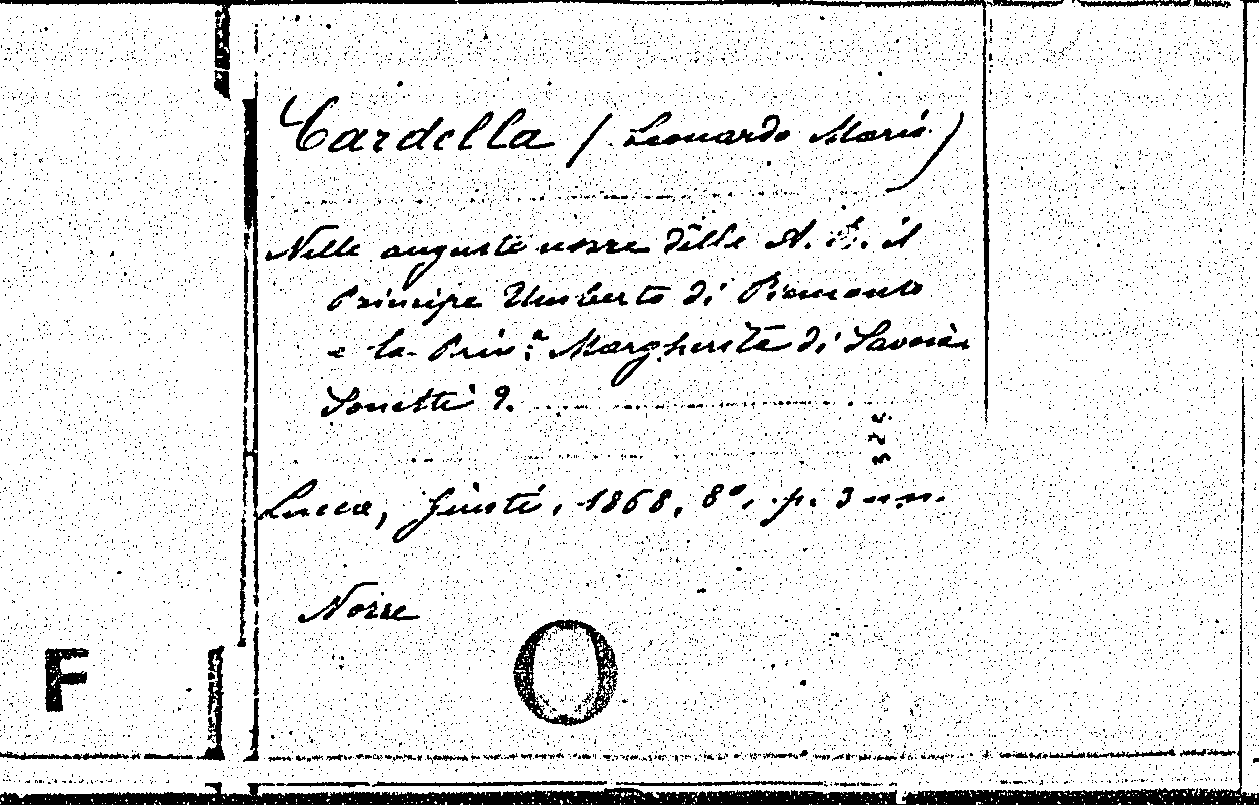 Cardella (Leonardo Maria)
Nelle auguste nozze delle A. R. il
Principe Umberto di Piemonte
e la Prin.ª Margherita di Savoia.
Sonetti 9.
Lucca, Giusti, 1868, 8º, p. 3 nn.
Nozze
F
O